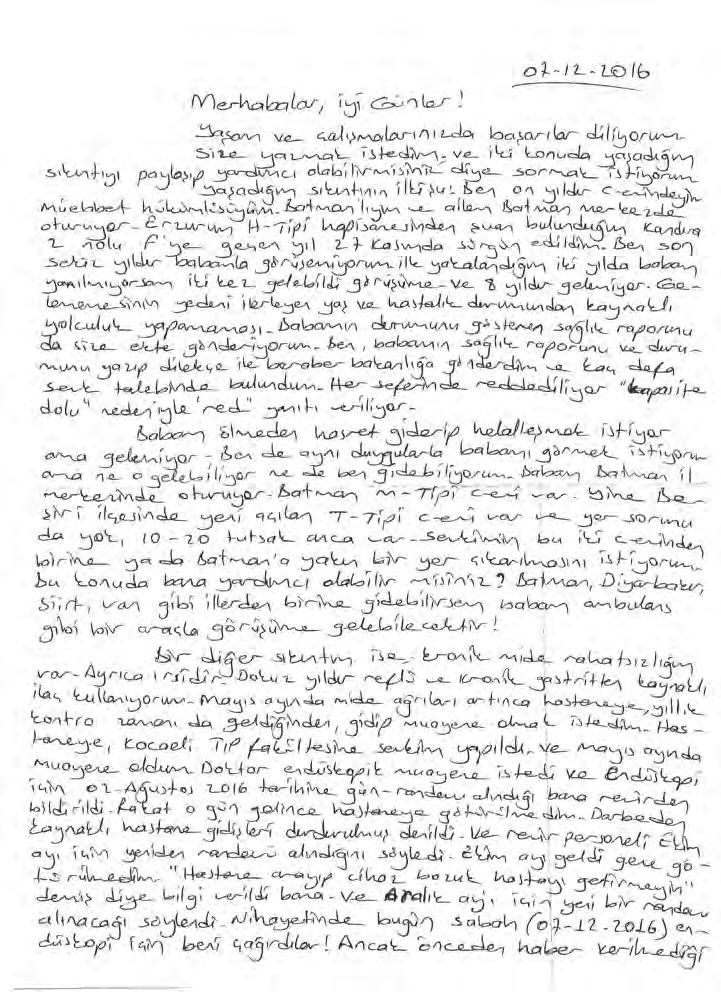 07-12-2016
Merhabalar, iyi Günler!
Yaşam ve çalışmalarınızda başarılar diliyorum
size yazmak istedim. ve iki konuda yaşadığım
sıkıntıyı paylaşıp yardımcı olabilirmisiniz diye sormak istiyorum
yaşadığım sıkıntının ilki şu: Ben on yıldır c.evindeyim
müebbet hükümlüsüyüm. Batman'lıyım ve ailem Batman merkezde
oturuyor. Erzurum H-Tipi hapisanesinden şuan bulunduğum Kandıra
2 nolu F'ye geçen yıl 27 Kasımda sürgün edildim. Ben son
sekiz yıldır babamla görüşemiyorum ilk yakalandığım iki yılda babam
yanılmıyorsam iki kez gelebildi görüşüme. ve 8 yıldır gelemiyor. Ge-
lememesinin nedeni ilerleyen yaş ve hastalık durumundan kaynaklı
yolculuk yapamaması. Babamın durumunu gösteren sağlık raporunu
da size ekte gönderiyorum. Ben, babamın sağlık raporunu ve duru-
munu yazıp dilekçe ile beraber bakanlığa gönderdim ve kaç defa
sevk talebinde bulundum. Her seferinde reddediliyor "kapasite
dolu" nedeniyle 'red' yanıtı veriliyor.
Babam ölmeden hasret giderip helalleşmek istiyor
ama gelemiyor. Ben de aynı duygularla babamı görmek istiyorum
ama ne o gelebiliyor ne de ben gidebiliyorum. Babam Batman il
merkezinde oturuyor. Batman M-Tipi c.evi var. Yine Be-
şiri ilçesinde yeni açılan T-Tipi c.evi var ve yer sorunu
da yok, 10-20 tutsak anca var. Sevkimin bu iki c.evinden
birine ya da Batman'a yakın bir yer çıkarılmasını istiyorum.
Bu konuda bana yardımcı olabilir misiniz? Batman, Diyarbakır,
Siirt, Van gibi illerden birine gidebilirsem babam ambulans
gibi bir araçla görüşüme gelebilecektir!
Bir diğer sıkıntım ise kronik mide rahatsızlığım
var. Ayrıca irsidir. Dokuz yıldır reflü ve kronik gastritten kaynaklı
ilaç kullanıyorum. Mayıs ayında mide ağrıları artınca hastaneye, yıllık
kontro zamanı da geldiğinden, gidip muayene olmak istedim. Has-
taneye, Kocaeli Tıp fakültesine sevkim yapıldı. ve Mayıs ayında
muayene oldum. Doktor endüskopik muayene istedi ve Endüskopi
için 02-Ağustos 2016 tarihine gün-randevu alındığı bana revirden
bildirildi. Fakat o gün gelince hastaneye götürülmedim. Darbeden
kaynaklı hastane gidişleri durdurulmuş denildi. Ve revir personeli Ekim
ayı için yeniden randevu alındığını söyledi. Ekim ayı geldi gene gö-
türülmedim. "Hastane arayıp cihaz bozuk hastayı getirmeyin"
demiş diye bilgi verildi bana. Ve Aralık ayı için yeni bir randevu
alınacağı söylendi. Nihayetinde bugün sabah (07-12-2016) en-
düskopi için beni çağırdılar! Ancak önceden haber verilmediği